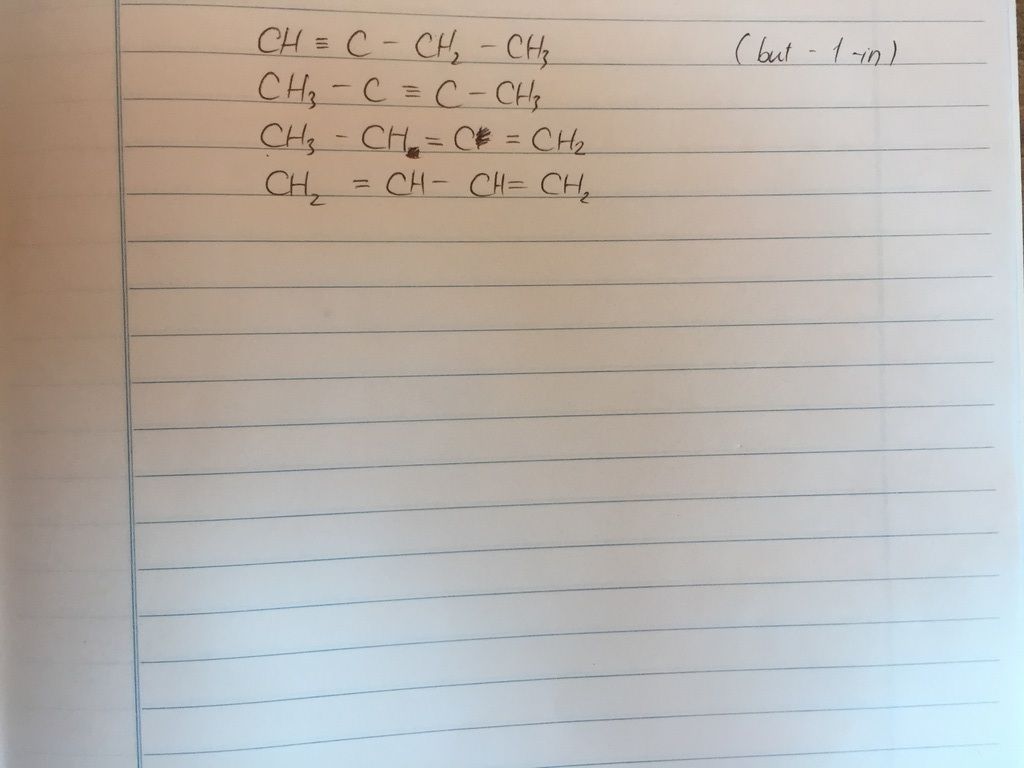 CH ≡ C - CH₂ - CH₃ (but - 1 -in)
CH₃ - C ≡ C - CH₃
CH₃ - CH = C = CH₂
CH₂ = CH - CH = CH₂